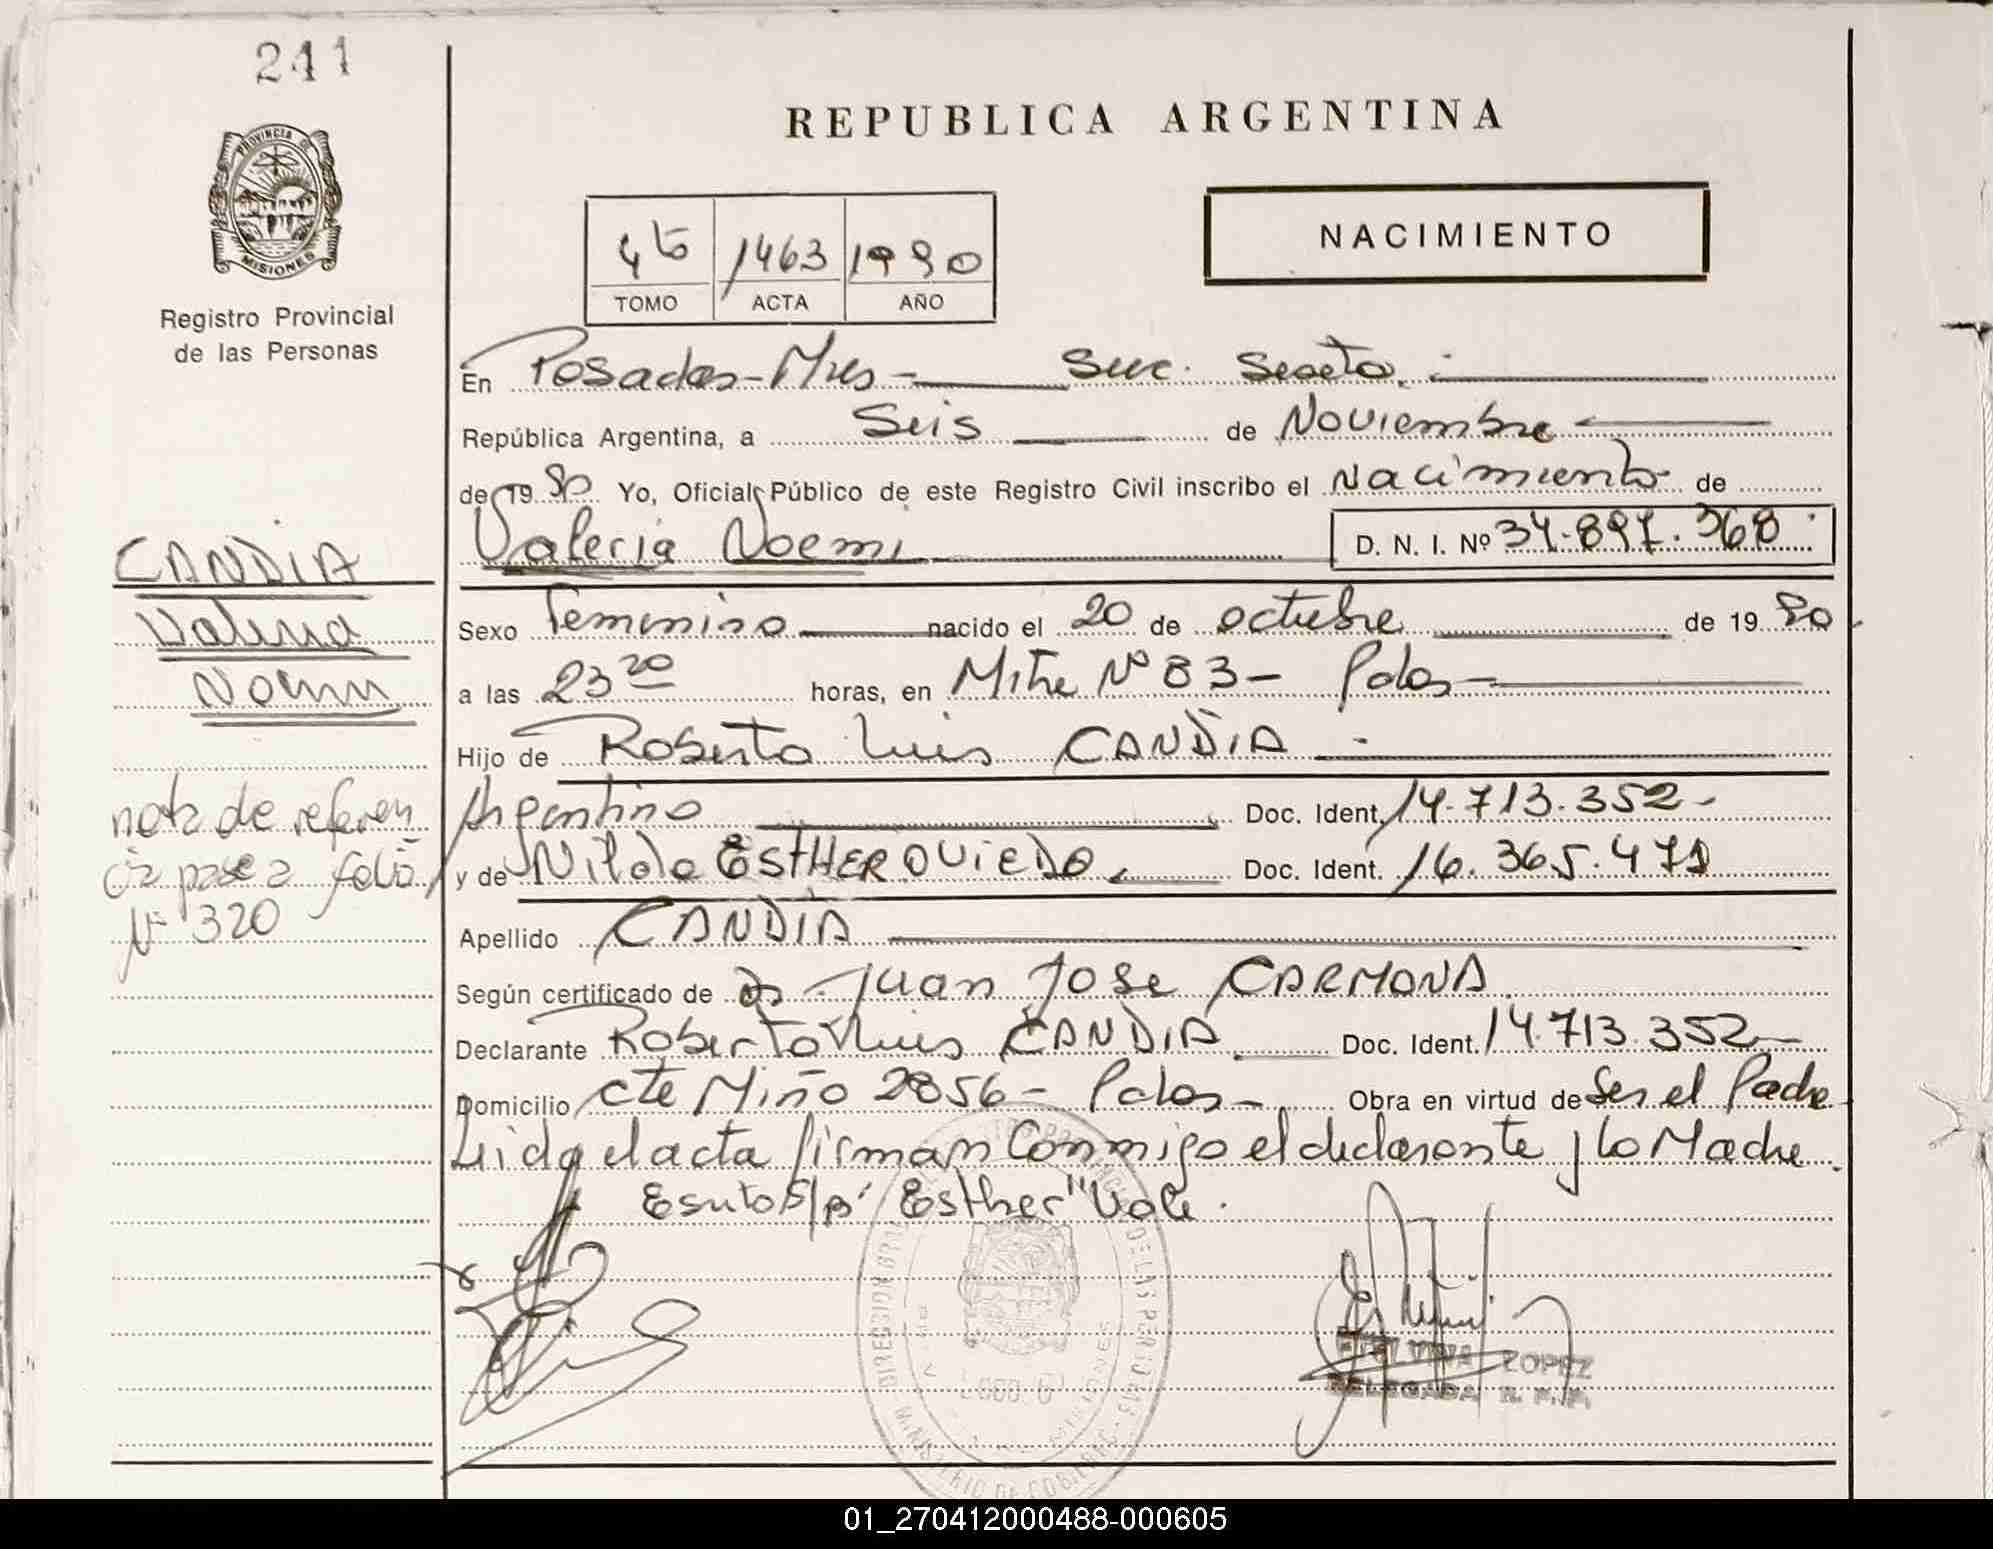 241
REPUBLICA ARGENTINA
PROVINCIA DE MISIONES
Registro Provincial
de las Personas
4to 1463 1990
TOMO ACTA AÑO
NACIMIENTO
En Posadas-Mnes - Suc. Sexta.
República Argentina, a Seis de Noviembre
de 19 90 Yo, Oficial Público de este Registro Civil inscribo el Nacimiento de
Valeria Noemi D. N. I. Nº 34.897.368
CANDIA
Valeria
Noemi
Sexo Femenino nacido el 20 de octubre de 19 90
a las 23 20 horas, en Mitre Nº 83 - Pdas -
Hijo de Roberto Luis CANDIA -
Argentino Doc. Ident. 14.713.352 -
y de Nilda ESTHER OVIEDO, Doc. Ident. 16.365.471
nota de referen
cia pase a folio
Nº 320
Apellido CANDIA
Según certificado de Dr. Juan Jose CARMONA
Declarante Roberto Luis CANDIA Doc. Ident. 14.713.352 -
Domicilio Cte Miño 2856 - Pdas - Obra en virtud de Ser el Padre
Leida el acta firman Conmigo el declarante y la Madre.
Esther" Vale.
LOPEZ
DELEGADA R. P. P.
01_270412000488-000605